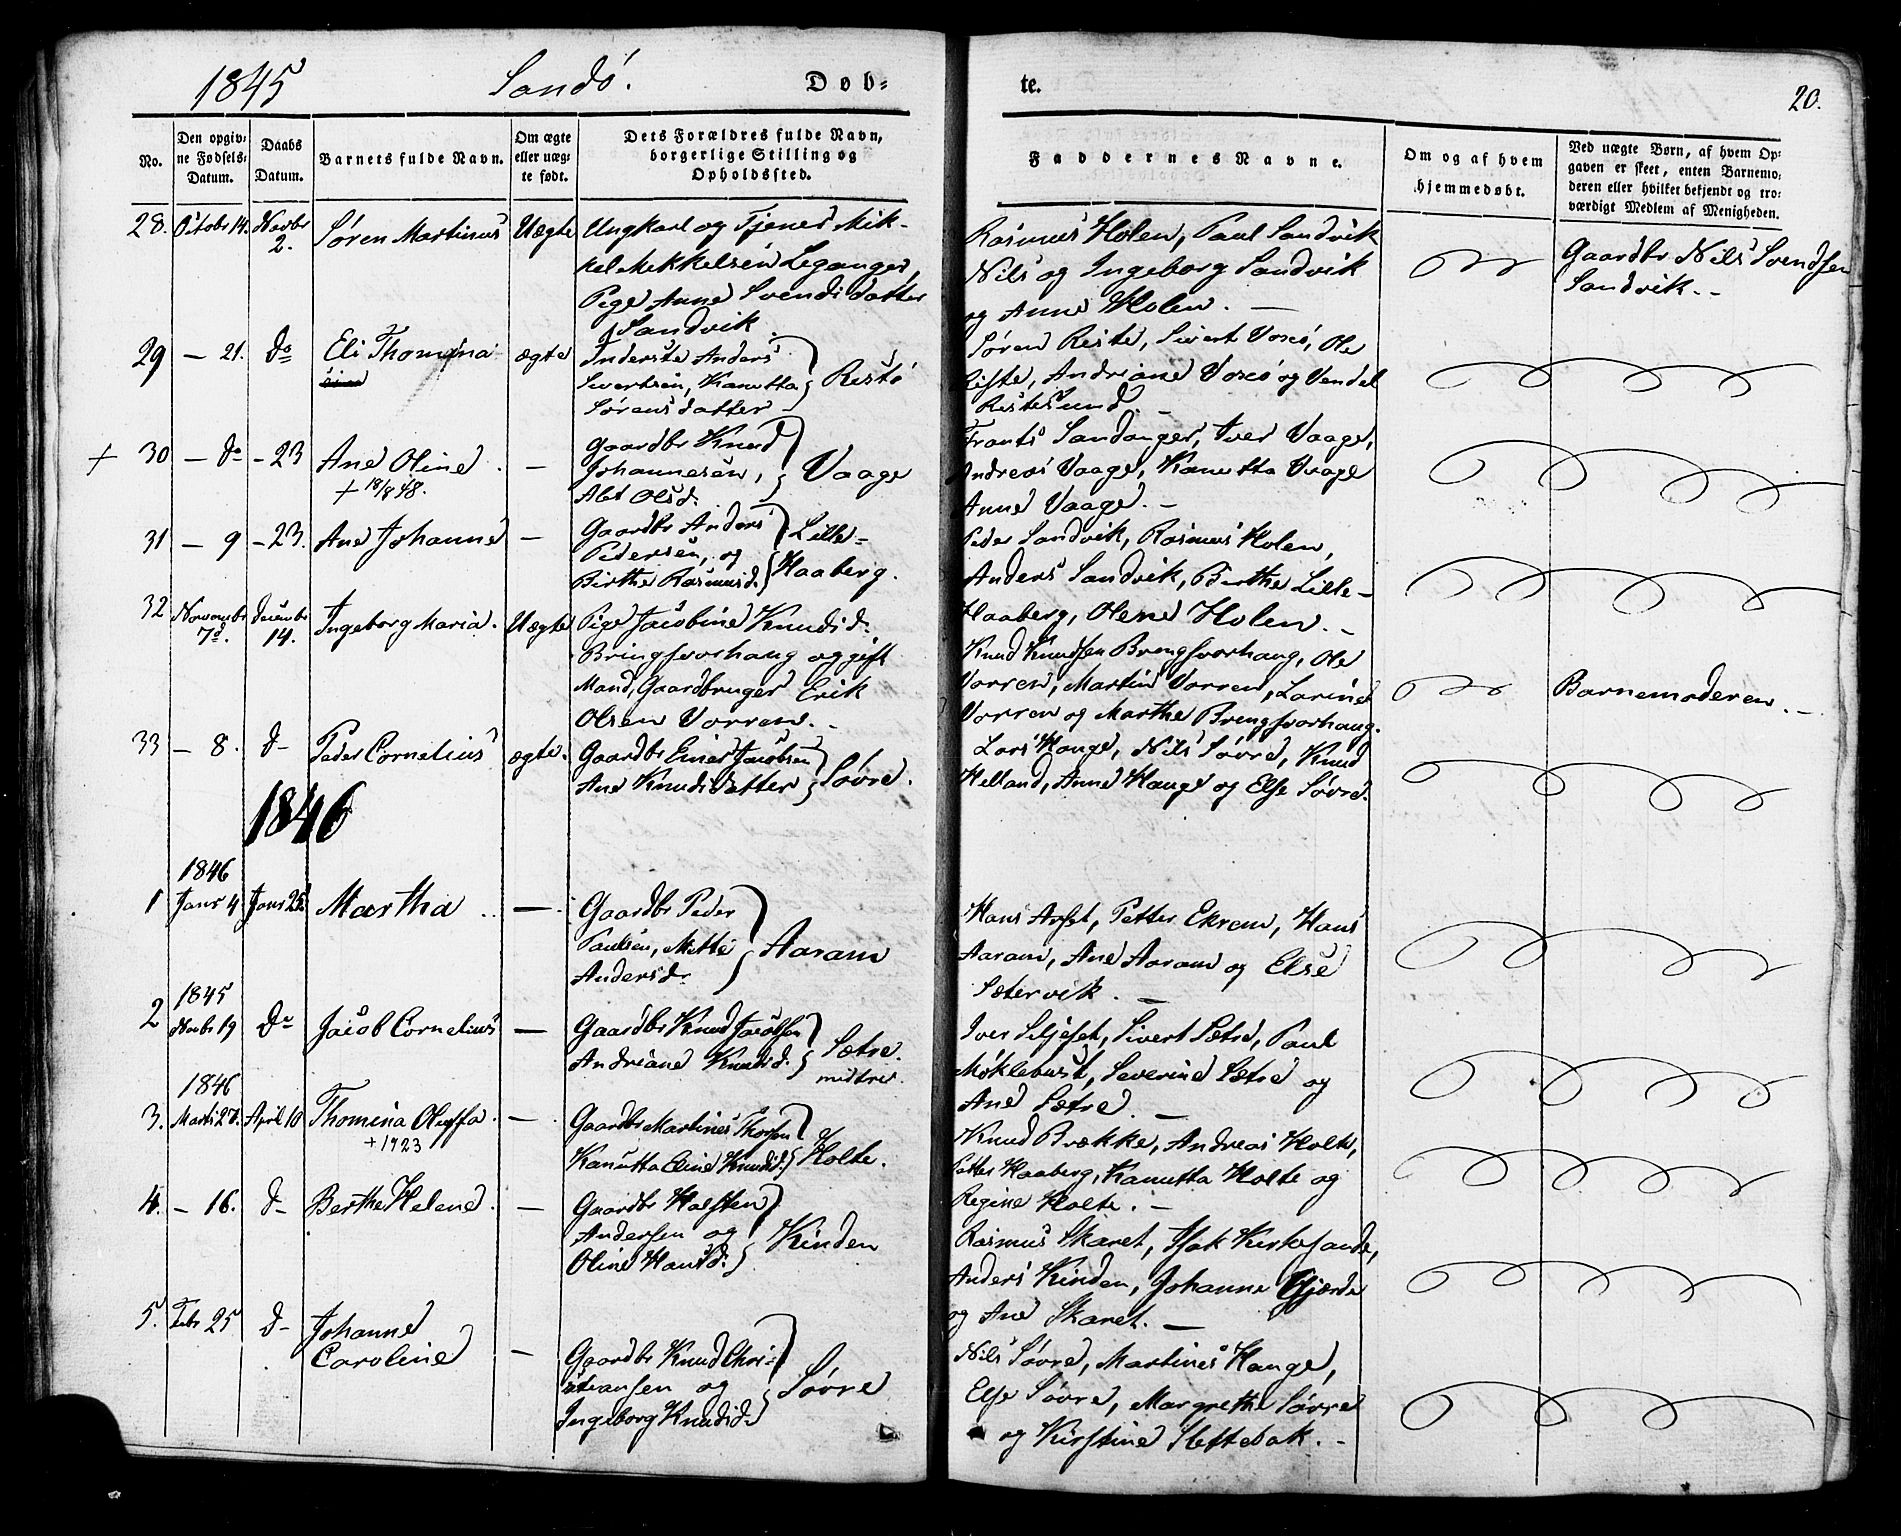 1845
Sandö.
Døb-
te.
20.
No.
Den opgiv-
ne Fødsels-
Datum.
Daabs
Datum.
Barnets fulde Navn.
Om ægte
eller uæg-
te født.
Dets Forældres fulde Navn,
borgerlige Stilling og
Opholdssted.
Faddernes Navne.
Om og af hvem
hjemmedøbt.
Ved uægte Børn, af hvem Op-
gaven er skeet, enten Barnemo-
deren eller hvilket bekjendt og tro-
værdigt Medlem af Menigheden.
28. Octobr 14. Novbr 2. Søren Martinus Uægte
Ungkarl og Tjener Mik-
kel Mikkelsen Leganger,
Pige Anne Svendsdatter
Sandvik.
Rasmus Holen, Paul Sandvik
Nils og Ingeborg Sandvik
og Anne Holen. —
Gaardbr Nils Svendsen
Sandvik. -
29 — 21. do Eli Thomina ægte
Inderste Anders
Sivertsen, Kanutta
Sørensdatter
Ristö
Søren Riste, Sivert Voxö, Ole
Riste, Andriane Voxö og Vendel
Ristesund. -
+ 30 — do - 23 Ane Oline. —
+ 18/8 48.
Gaardbr Knud
Johannesen,
Abt Olsd.
Vaage
Frants Sandanger, Iver Vaage,
Andreas Vaage, Kanutta Vaage
Anne Vaage. -
31 — 9 - 23. Ane Johanne —
Gaardbr Anders
Pedersen, og
Birthe Rasmusd.
Lille-
Haaberg.
Peder Sandvik, Rasmus Holen,
Anders Sandvik, Birthe Lille-
Haaberg, Olene Holen. -
32 Novembr 7d. Decembr 14. Ingeborg Maria. Uægte
Pige Jacobine Knudsd.
Bringsvorhaug og gift
Mand, Gaardbruger Erik
Olsen Vorren. -
Knud Knudsen Bringsvorhaug, Ole
Vorren, Martin Vorren, Larine
Vorren og Marthe Bringsvorhaug.
Barnemoderen. -
33 — 8. d- Peder Cornelius ægte.
Gaardbr Einar Jacobsen
Ane Knudsdatter
Søvre.
Lars Hauge, Nils Søvre, Knud
Helland, Anne Hauge og Else Søvre.
1846
1846
1 Janr 4 Janr 25 Martha .. —
Gaardbr Peder
Paulsen, Mitte
Andersdr
Aaram
Hans Aaset, Petter Ekrem, Hans
Aaram, Ane Aaram og Else
Sætervik. —
1845
2 Novbr 19 do Jacob Cornelius —
Gaardbr Knud Jacobsen
Andriane Knudsd.
Sætre.
midtre.
Iver Siljeset, Sivert Sætre, Paul
Möklebust, Severine Sætre og
Ane Sætre. —
1846
3. Marts 27. April 10 Thomina Oluffa. —
+ 1923
Gaardbr Martines Thorsen
Kanutta Eline Knudsd.
Holte.
Knud Brække, Andreas Holte,
Petter Haaberg, Kanutta Holte og
Regine Holte. -
4. — 16. d- Berthe Helene. —
Gaardbr Halsten
Andersen og
Oline Hansd.
Kinden
Rasmus Skaret, Isak Kirkesande,
Anders Kinden, Johanne Gjærde
og Ane Skaret. —
5. Febr 25 d- Johanne
Caroline —
Gaardbr Knud Chri-
stiansen og
Ingeborg Knudsd.
Søvre
Nils Søvre, Martines Hauge,
Else Søvre, Margrethe Søvre
og Kirstine Slettebak. -